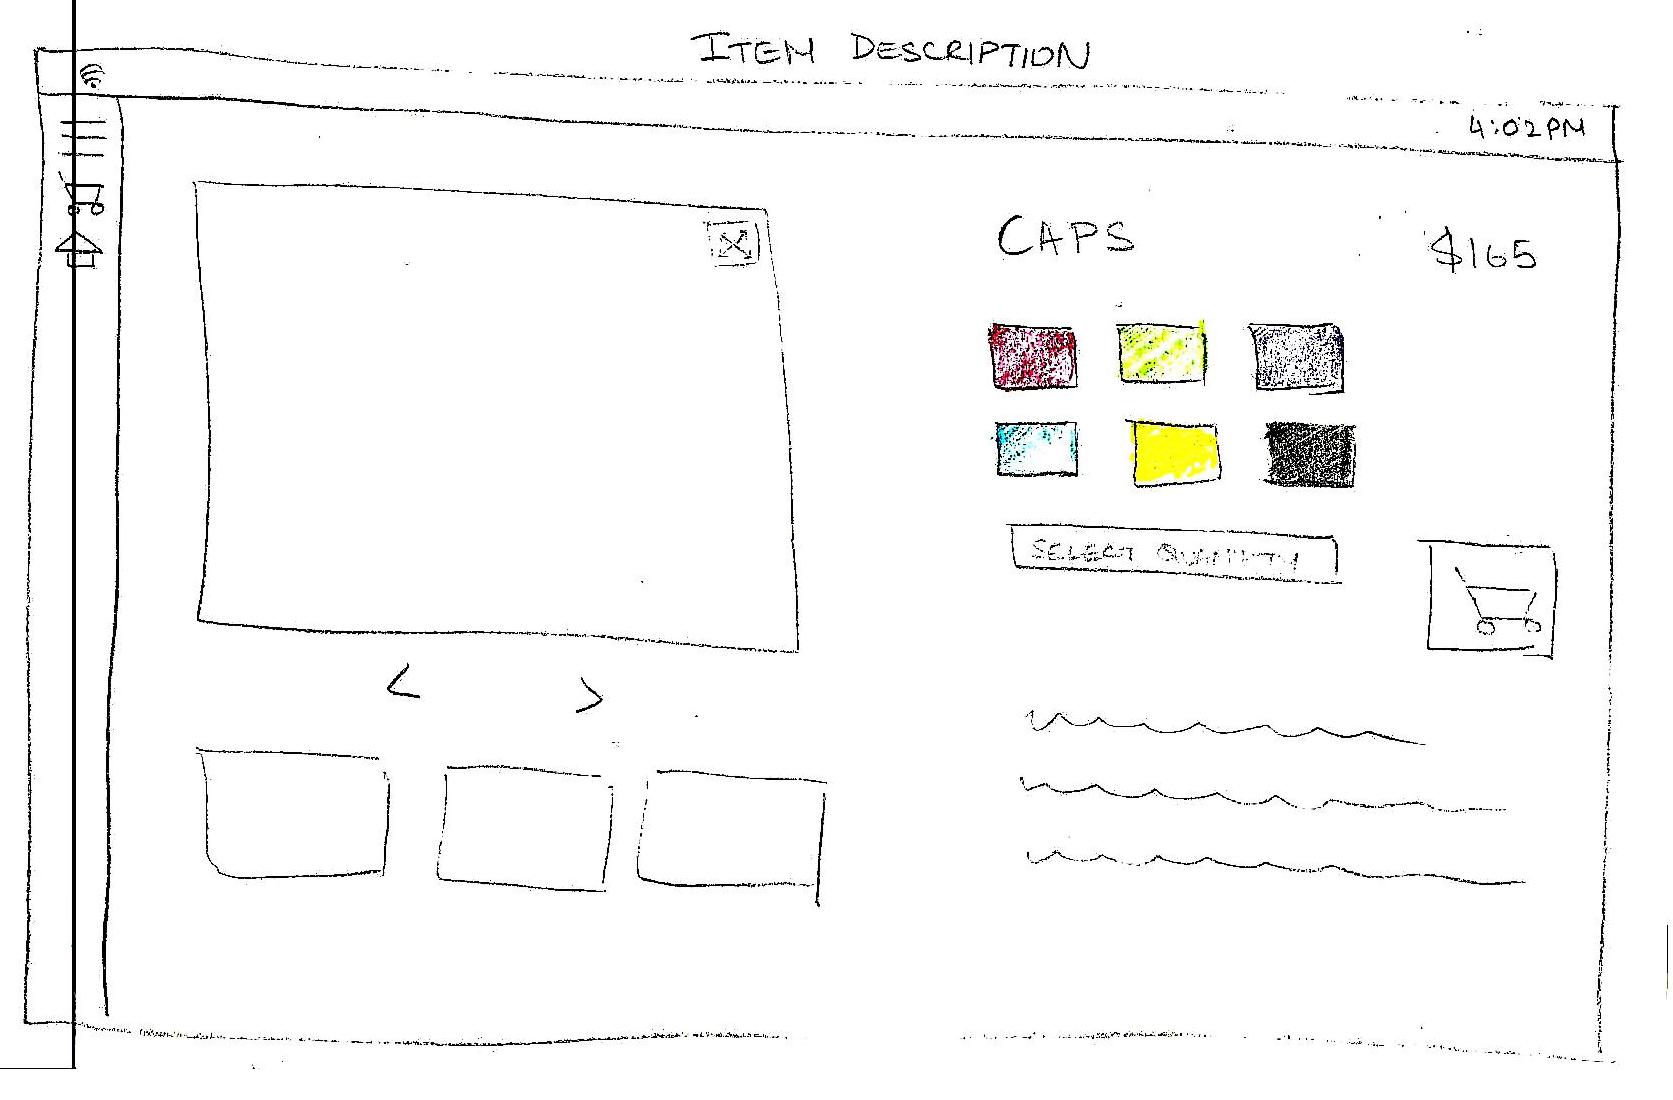 ITEM DESCRIPTION
4:02PM
CAPS
$165
SELECT QUANTITY